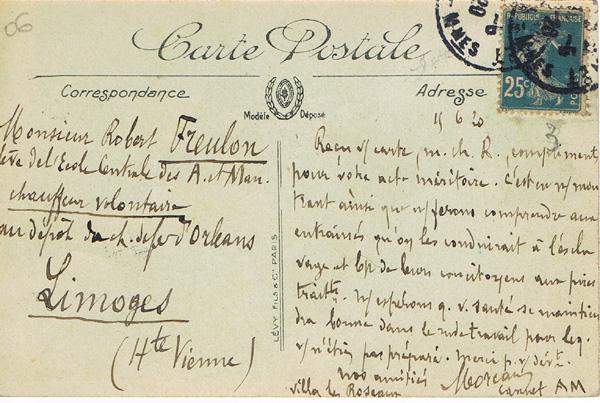 06
Carte Postale
Correspondance
Adresse
Modèle Déposé
RÉPUBLIQUE FRANÇAISE
25c
LÉVY FILS & Cie PARIS
Monsieur Robert Freulon
élève de l'Ecole Centrale des A. et Man.
chauffeur volontaire
au dépôt du ch. de fer d'Orléans
Limoges
(Hte Vienne)
15 6 20
3
Reçu v/ carte, m. ch. R., compliments
pour votre acte méritoire. C'est en v/ mon
trant ainsi que v/ ferons comprendre aux
entrainés qu'on les conduirait à l'escla
vage et bp de leurs concitoyens aux pires
traitts. N/ espérons q. v. santé se maintien
dra bonne dans le rude travail pour leq.
v/ n'étiez pas préparé. Merci p. v/
nos amitiés
Moreau
villa les Roseaux
Cannet AM